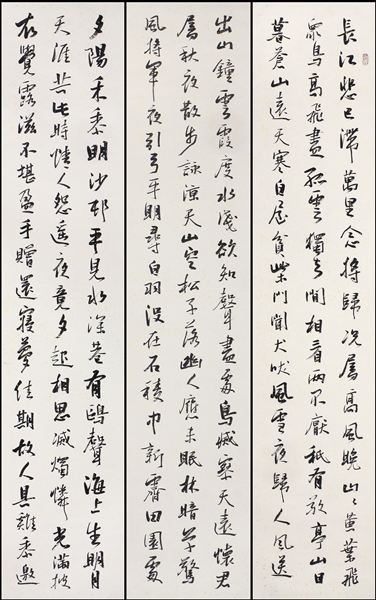 長江悲已滯萬里念將歸況屬高風晚山山黃葉飛
眾鳥高飛盡孤雲獨去閒相看兩不厭祗有敬亭山日
暮蒼山遠天寒白屋貧柴門聞犬吠風雪夜歸人風送
出山鐘雲霞度水淺欲知聲盡處鳥滅寥天遠懷君
屬秋夜散步詠涼天山空松子落幽人應未眠林暗草驚
風將軍夜引弓平明尋白羽沒在石稜中新霽田園處
夕陽禾黍明沙邨平見水深巷有鷗聲海上生明月
天涯共此時情人怨遙夜竟夕起相思滅燭憐光滿披
衣覺露滋不堪盈手贈還寢夢佳期故人具雞黍邀